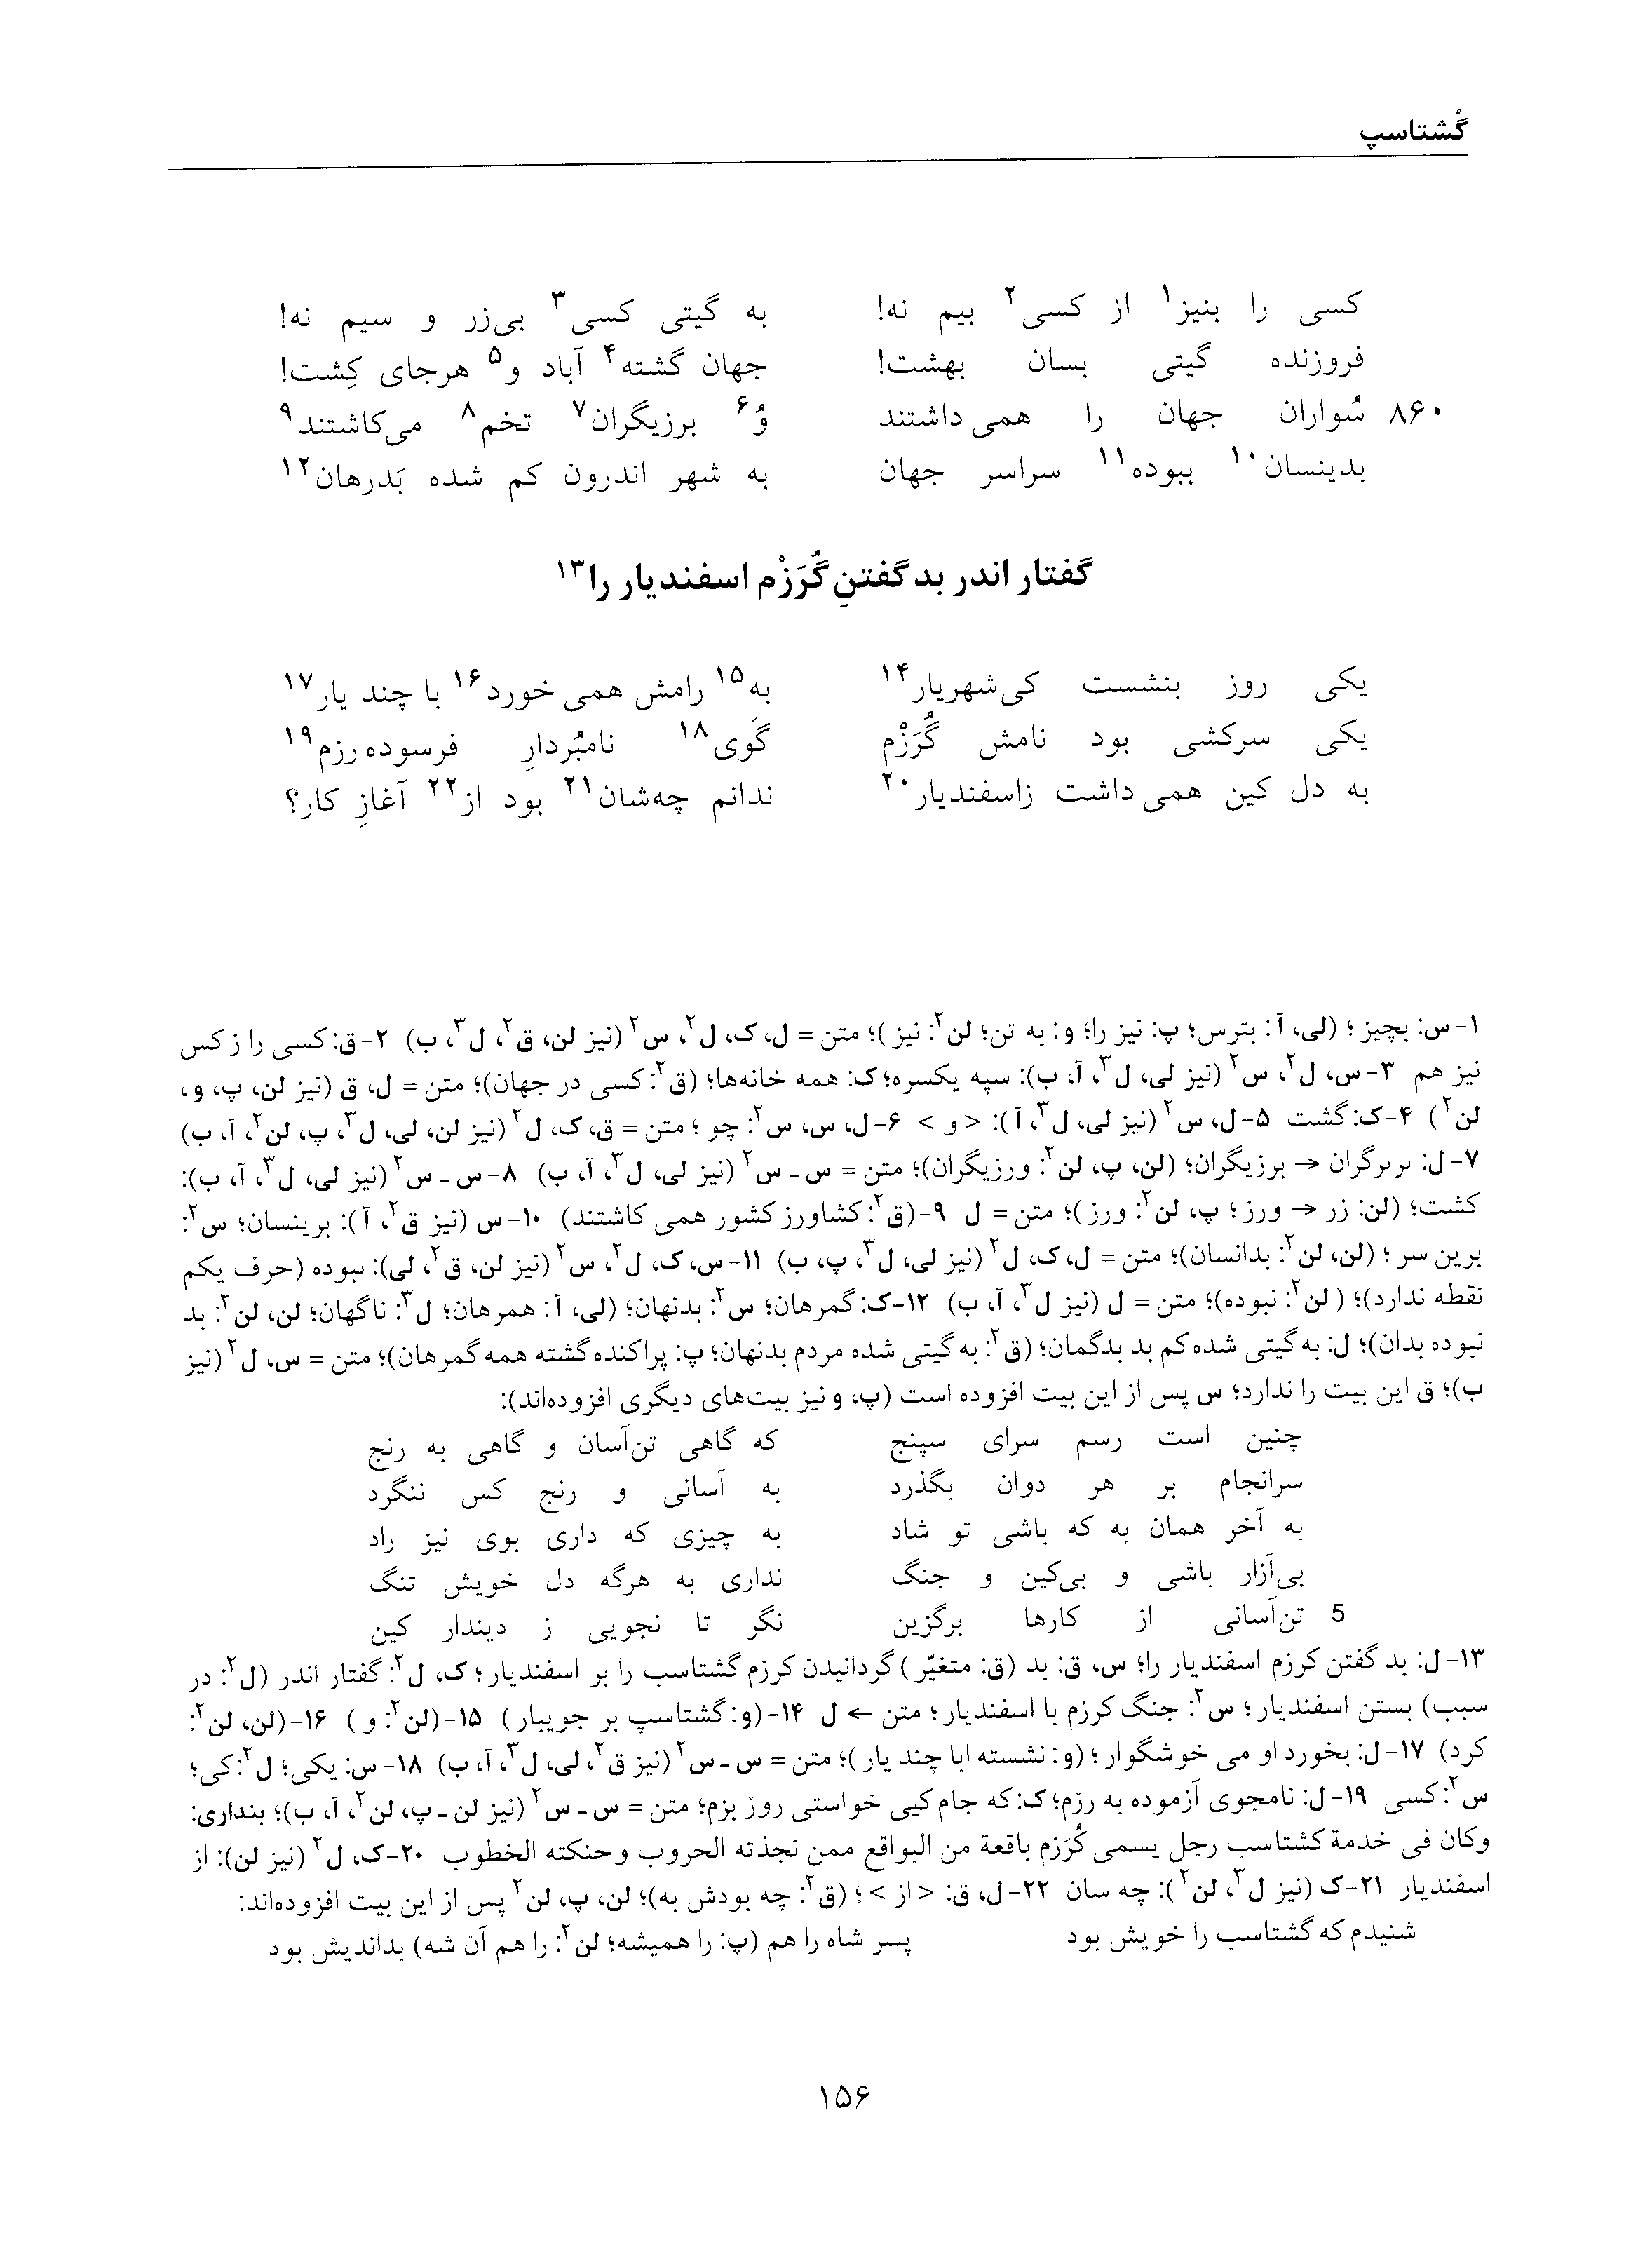 گُشتاسپ
کسی را بنیز۱ از کسی۲ بیم نه! به گیتی کسی۳ بی‌زر و سیم نه!
فروزنده گیتی بسان بهشت! جهان گشته۴ آباد و۵ هرجای کِشت!
۸۶۰ سُواران جهان را همی‌داشتند وُ۶ برزیگران۷ تخم۸ می‌کاشتند۹
بدینسان۱۰ ببوده۱۱ سراسر جهان به شهر اندرون کم شده بَدرهان۱۲
گفتار اندر بد گفتنِ گُرَزْم اسفندیار را۱۳
یکی روز بنشست کی‌شهریار۱۴ به۱۵ رامش همی‌خورد۱۶ با چند یار۱۷
یکی سرکشی بود نامش گُرَزْم گَوی۱۸ نامبُردارِ فرسوده‌رزم۱۹
به دل کین همی‌داشت زاسفندیار۲۰ ندانم چه‌شان۲۱ بود از۲۲ آغازِ کار؟
۱-س: بچیز؛ (لی، آ: بترس؛ پ: نیز را؛ و: به تن؛ لن۲: نیز)؛ متن = ل، ک، ل۲، س۲ (نیز لن، ق۲، ل۳، ب) ۲-ق: کسی را ز کس
نیز هم ۳-س، ل۲، س۲ (نیز لی، ل۳، آ، ب): سپه یکسره؛ ک: همه خانه‌ها؛ (ق۲: کسی در جهان)؛ متن = ل، ق (نیز لن، پ، و،
لن۲) ۴-ک: گشت ۵-ل، س۲ (نیز لی، ل۳، آ): <و> ۶-ل، س، س۲: چو؛ متن = ق، ک، ل۲ (نیز لن، لی، ل۳، پ، لن۲، آ، ب)
۷-ل: ىربرگران → برزیگران؛ (لن، پ، لن۲: ورزیگران)؛ متن = س ـ س۲ (نیز لی، ل۳، آ، ب) ۸-س ـ س۲ (نیز لی، ل۳، آ، ب):
کشت؛ (لن: زر → ورز؛ پ، لن۲: ورز)؛ متن = ل ۹-(ق۲: کشاورز کشور همی کاشتند) ۱۰-س (نیز ق۲، آ): برینسان؛ س۲:
برین سر؛ (لن، لن۲: بدانسان)؛ متن = ل، ک، ل۲ (نیز لی، ل۳، پ، ب) ۱۱-س، ک، ل۲، س۲ (نیز لن، ق۲، لی): ىبوده (حرف یکم
نقطه ندارد)؛ (لن۲: نبوده)؛ متن = ل (نیز ل۳، آ، ب) ۱۲-ک: گمرهان؛ س۲: بدنهان؛ (لی، آ: همرهان؛ ل۳: ناگهان؛ لن، لن۲: بد
نبوده بدان)؛ ل: به گیتی شده کم بد بدگمان؛ (ق۲: به گیتی شده مردم بدنهان؛ پ: پراکنده گشته همه گمرهان)؛ متن = س، ل۲ (نیز
ب)؛ ق این بیت را ندارد؛ س پس از این بیت افزوده است (پ، و نیز بیت‌های دیگری افزوده‌اند):
چنین است رسم سرای سپنج که گاهی تن‌آسان و گاهی به رنج
سرانجام بر هر دوان بگذرد به آسانی و رنج کس ننگرد
به آخر همان به که باشی تو شاد به چیزی که داری بوی نیز راد
بی‌آزار باشی و بی‌کین و جنگ نداری به هرگه دل خویش تنگ
5 تن‌آسانی از کارها برگزین نگر تا نجویی ز دیندار کین
۱۳-ل: بد گفتن کرزم اسفندیار را؛ س، ق: بد (ق: متغیّر) گردانیدن کرزم گشتاسب را بر اسفندیار؛ ک، ل۲: گفتار اندر (ل۲: در
سبب) بستن اسفندیار؛ س۲: جنگ کرزم با اسفندیار؛ متن ← ل ۱۴-(و: گشتاسپ بر جویبار) ۱۵-(لن۲: و) ۱۶-(لن، لن۲:
کرد) ۱۷-ل: بخورد او می خوشگوار؛ (و: نشسته ابا چند یار)؛ متن = س ـ س۲ (نیز ق۲، لی، ل۳، آ، ب) ۱۸-س: یکی؛ ل۲: کی؛
س۲: کسی ۱۹-ل: نامجوی آزموده به رزم؛ ک: که جام کیی خواستی روز بزم؛ متن = س ـ س۲ (نیز لن ـ پ، لن۲، آ، ب)؛ بنداری:
وکان فی خدمة کشتاسب رجل یسمی کُرَزم باقعة من البواقع ممن نجذته الحروب وحنکته الخطوب ۲۰-ک، ل۲ (نیز لن): از
اسفندیار ۲۱-ک (نیز ل۳، لن۲): چه سان ۲۲-ل، ق: <از>؛ (ق۲: چه بودش به)؛ لن، پ، لن۲ پس از این بیت افزوده‌اند:
شنیدم که گشتاسب را خویش بود پسر شاه را هم (پ: را همیشه؛ لن۲: را هم آن شه) بداندیش بود
۱۵۶